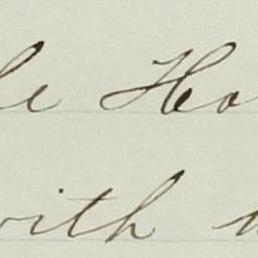 le Ho
with